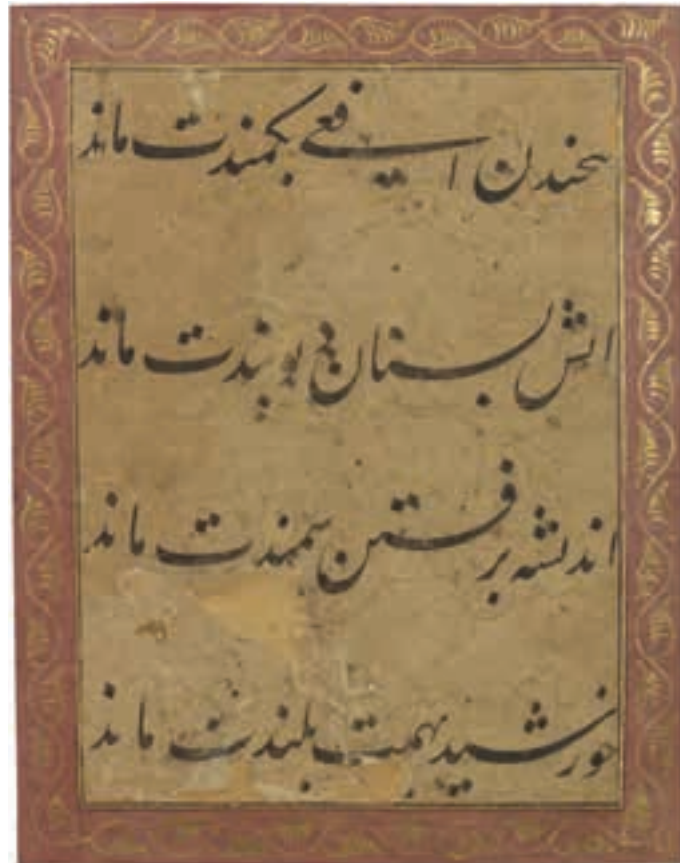 پیچیدن افعی بکمندت ماند
اتش بسنان دیو بندت ماند
اندیشه برفتن سمندت ماند
خورشید بهمت بلندت ماند